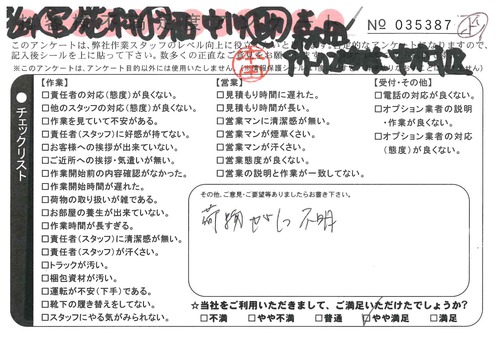 № 035387
このアンケートは、弊社作業スタッフのレベル向上に役立
記入後シールを上に貼って下さい。
※このアンケートは、アンケート目的以外には使用いたしません。
チェックリスト
【作業】
□責任者の対応(態度)が良くない。
□他のスタッフの対応(態度)が良くない。
□作業を見ていて不安がある。
□責任者(スタッフ)に好感が持てない。
□お客様への挨拶が出来ていない。
□ご近所への挨拶・気遣いが無い。
□作業開始前の内容確認がなかった。
□作業開始時間が遅れた。
□荷物の取り扱いが雑である。
□お部屋の養生が出来ていない。
□作業時間が長すぎる。
□責任者(スタッフ)に清潔感が無い。
□責任者(スタッフ)が汗くさい。
□トラックが汚い。
□梱包資材が汚い。
□運転が不安(下手)である。
□靴下の履き替えをしてない。
□スタッフにやる気がみられない。
【営業】
□見積もり時間に遅れた。
□見積もり時間が長い。
□営業マンに清潔感が無い。
□営業マンが煙草くさい。
□営業マンが汗くさい。
□営業態度が良くない。
□営業の説明と作業が一致してない。
【受付・その他】
□電話の対応が良くない。
□オプション業者の説明
・作業が良くない。
□オプション業者の対応
(態度)が良くない。
その他、ご意見・ご要望等ありましたらお書き下さい。
荷物 不明
☆当社をご利用いただきまして、ご満足いただけたでしょうか?
□不満 □やや不満 □普通 □やや満足 □満足